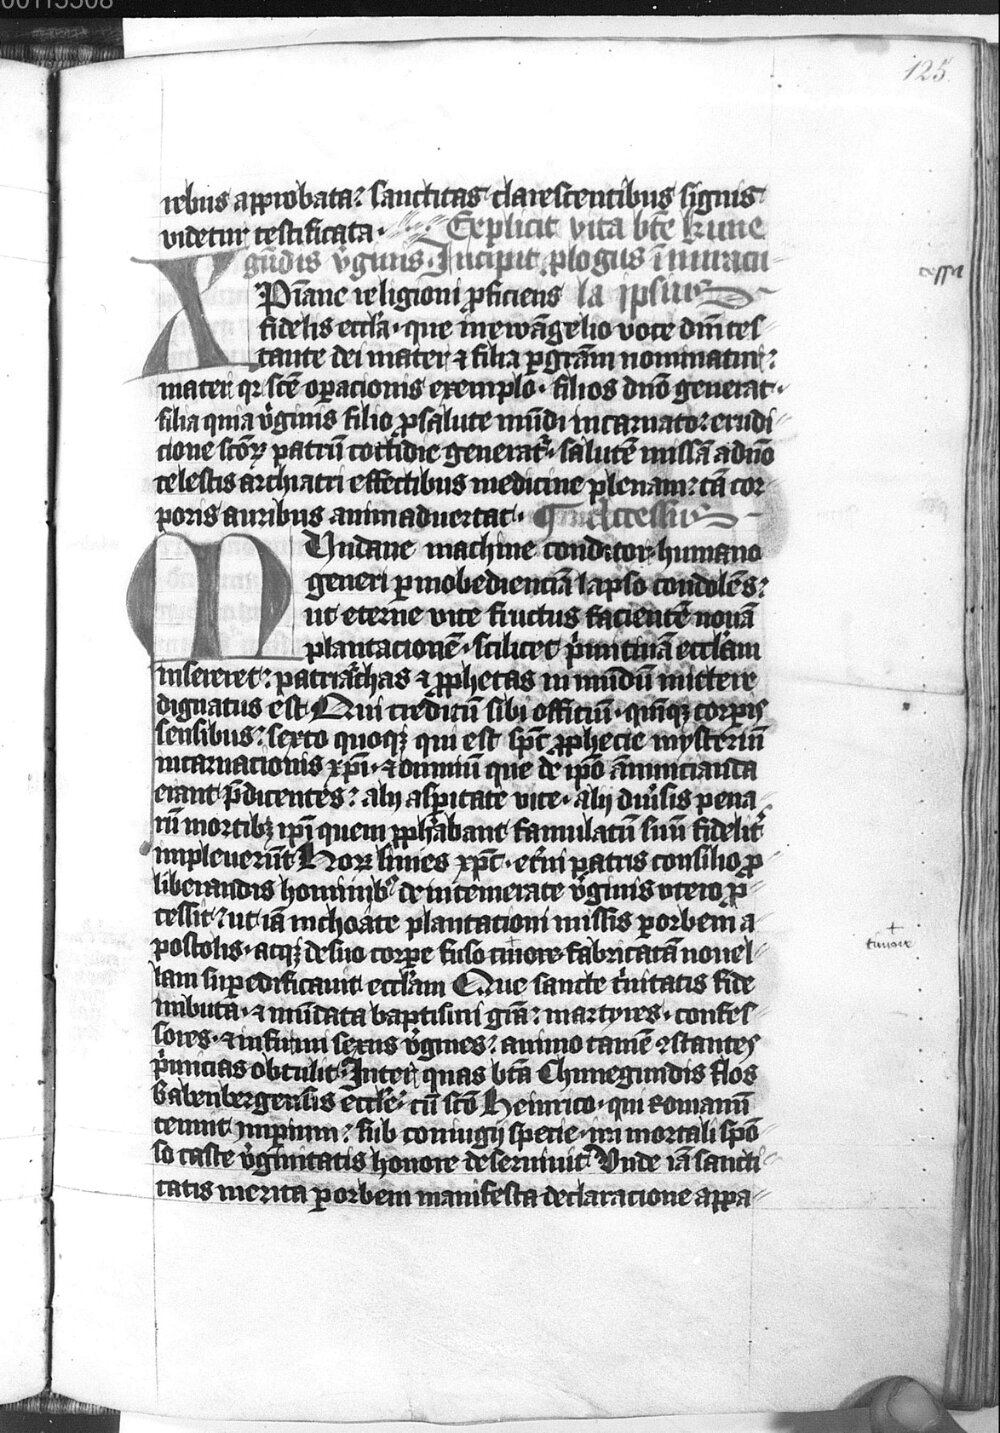 125
rebus approbata: sanctitas clarescentibus signis
videtur testificata. Explicit vita bt̄e kune
gūdis v̓ginis. Incipit plogus ī miracu
XPiane religioni ꝓficiens la ipsius
fidelis eccl̄a. que in ewāgelio voce dn̄i tes
tante dei mater ⁊ filia ꝑ grām nominatur:
mater qꝛ scē oꝑacionis exemplo. filios dn̄o generat.
filia quia v̓ginis filio ꝓ salute mūdi incarnato: erudi
cione scōꝝ patrū cottidie generat̉. salutē missā a dn̄o
celestis archiatri effectibus medicine plenam: tā cor
poris auribus animaduertat.
MUndane machine conditor humano
generi ꝑ inobedienciā lapso condolēs:
ut eterne vite fructus facientē nouā
plantacionē. scilicet p̓mitiuā eccl̄am
insereret: patriarchas ⁊ ꝓphetas in mūdū mittere
dignatus est. Qui creditū sibi officiū. quīqꝫ corꝑis
sensibus: sexto quoqꝫ qui est sp̄c ꝓphecie mysteriū
incarnacionis xp̄i. ⁊ omniū que de ip̄o ānuncianda
erant p̄dicentes: alij asꝑitate vite. alij diu̓sis pena
rū mortibꝫ ip̄i quem ꝓph̄abant famulatū suū fidelit̉
impleuerūt. Hoꝝ finies xp̄c. et̓ni patris consilio ꝓ
liberandis hominibꝰ de intemerate v̓ginis vtero ꝓ
cessit: ut iā inchoate plantationi missis ꝑ orbem a
postolis. atqꝫ de suo corꝑe fuso cruore fabricatā nouel
lam suꝑedificauit eccl̄am. Que sancte t̓nitatis fide
imbuta. ⁊ mūdata baptismi grā: martyres. confes
sores. ⁊ infirmi sexus v̓gines: animo tamē ꝯstantes
p̓micias obtulit. Inter quas bt̄a Chunegundis flos
Babenbergensis eccl̄e: cū scō Heinrico. qui Romanū
tenuit imꝑium: sub coniugij specie. im̄ortali spō
so caste v̓ginitatis honore deseruiuit. Unde iā sancti
tatis merita ꝑ orbem manifesta declaracione appa